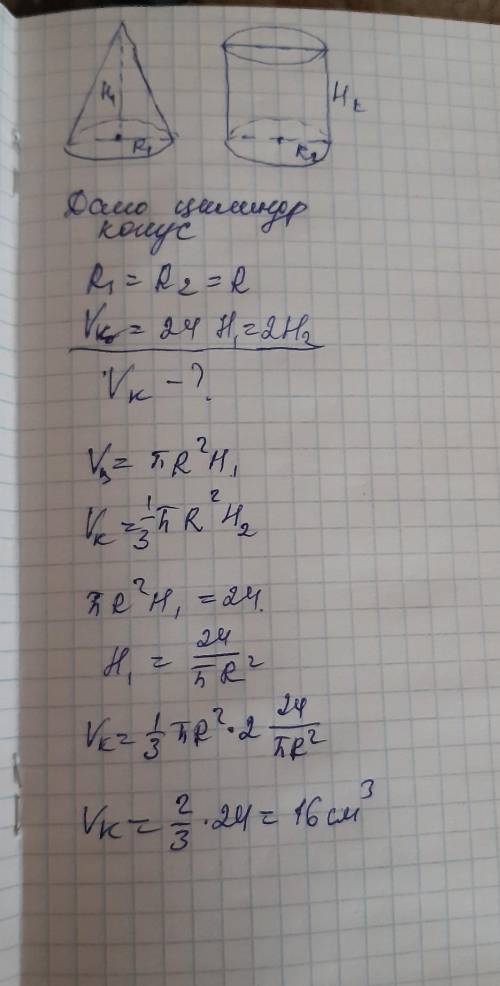 H₁ R₁
H₂ R₂
Дано цилиндр
конус
R₁ = R₂ = R
Vц = 24 H₁ = 2H₂
Vк - ?
Vц = πR²H₁
Vк = 1/3 πR²H₂
πR²H₁ = 24.
H₁ = 24/πR²
Vк = 1/3 πR² · 2 24/πR²
Vк = 2/3 · 24 = 16 см³